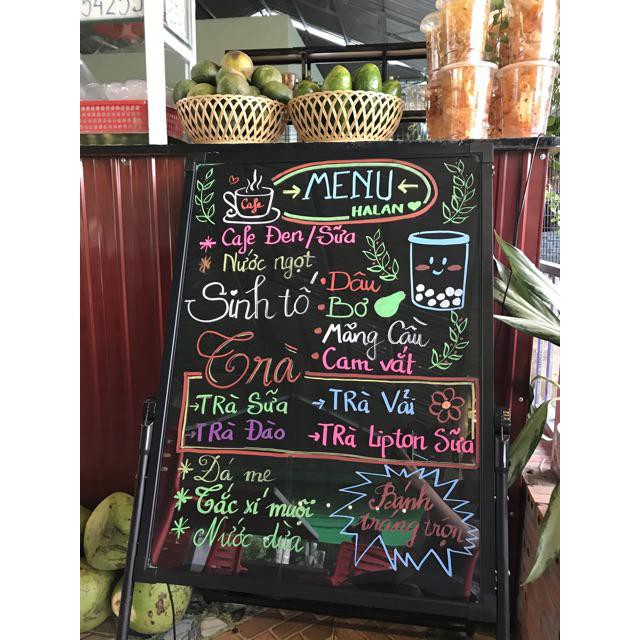 54253
MENU
HALAN
Cafe
Cafe Đen/Sữa
Nước ngọt
Sinh tố
Dâu
Bơ
Mãng Cầu
Cam vắt
Trà
TRà Sữa
TRà Vải
TRà Đào
TRà Lipton Sữa
Dá me
Tắc xí muội
Nước dừa
Bánh
tráng trộn